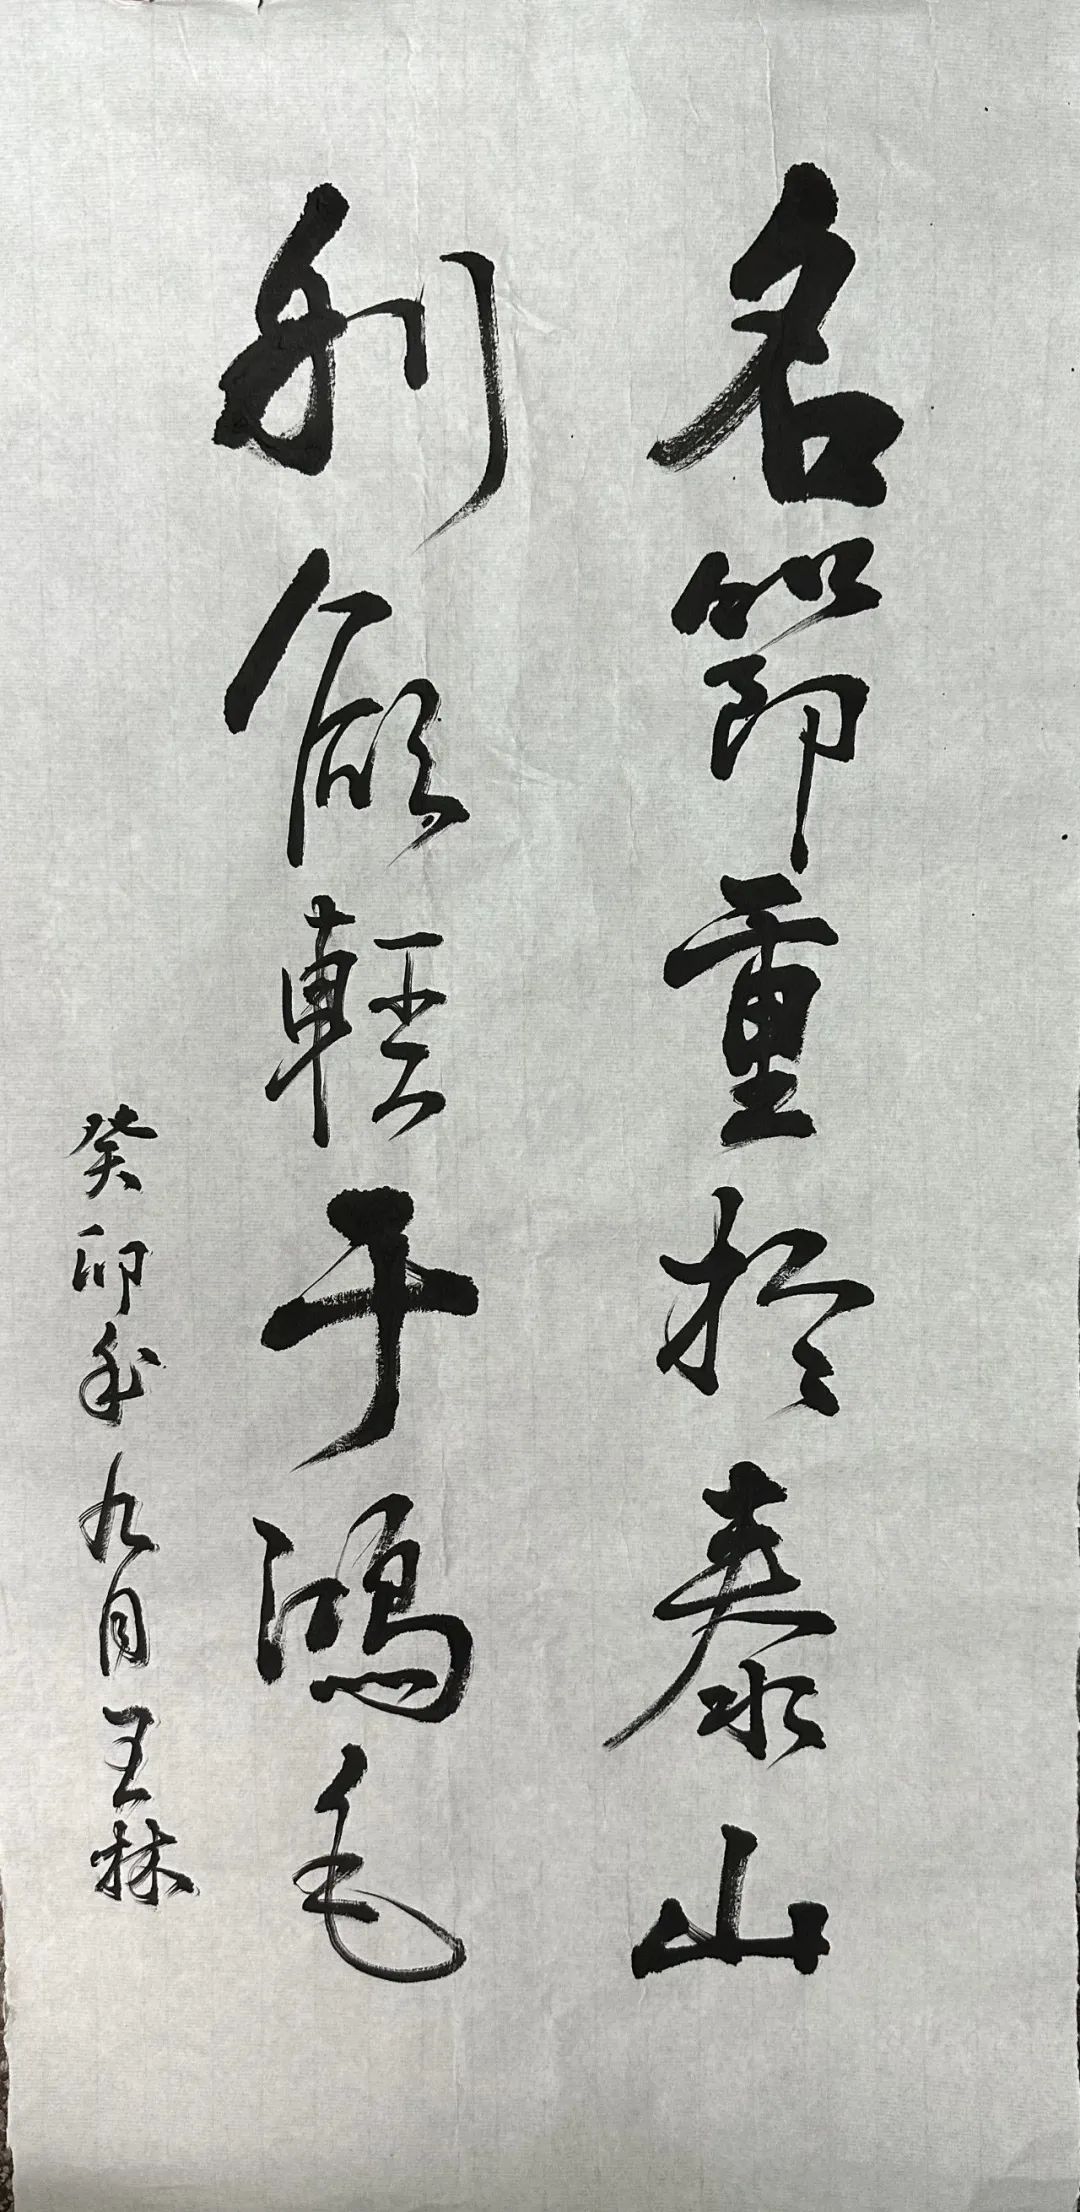 名節重於泰山
利欲輕于鴻毛
癸卯年九月王林